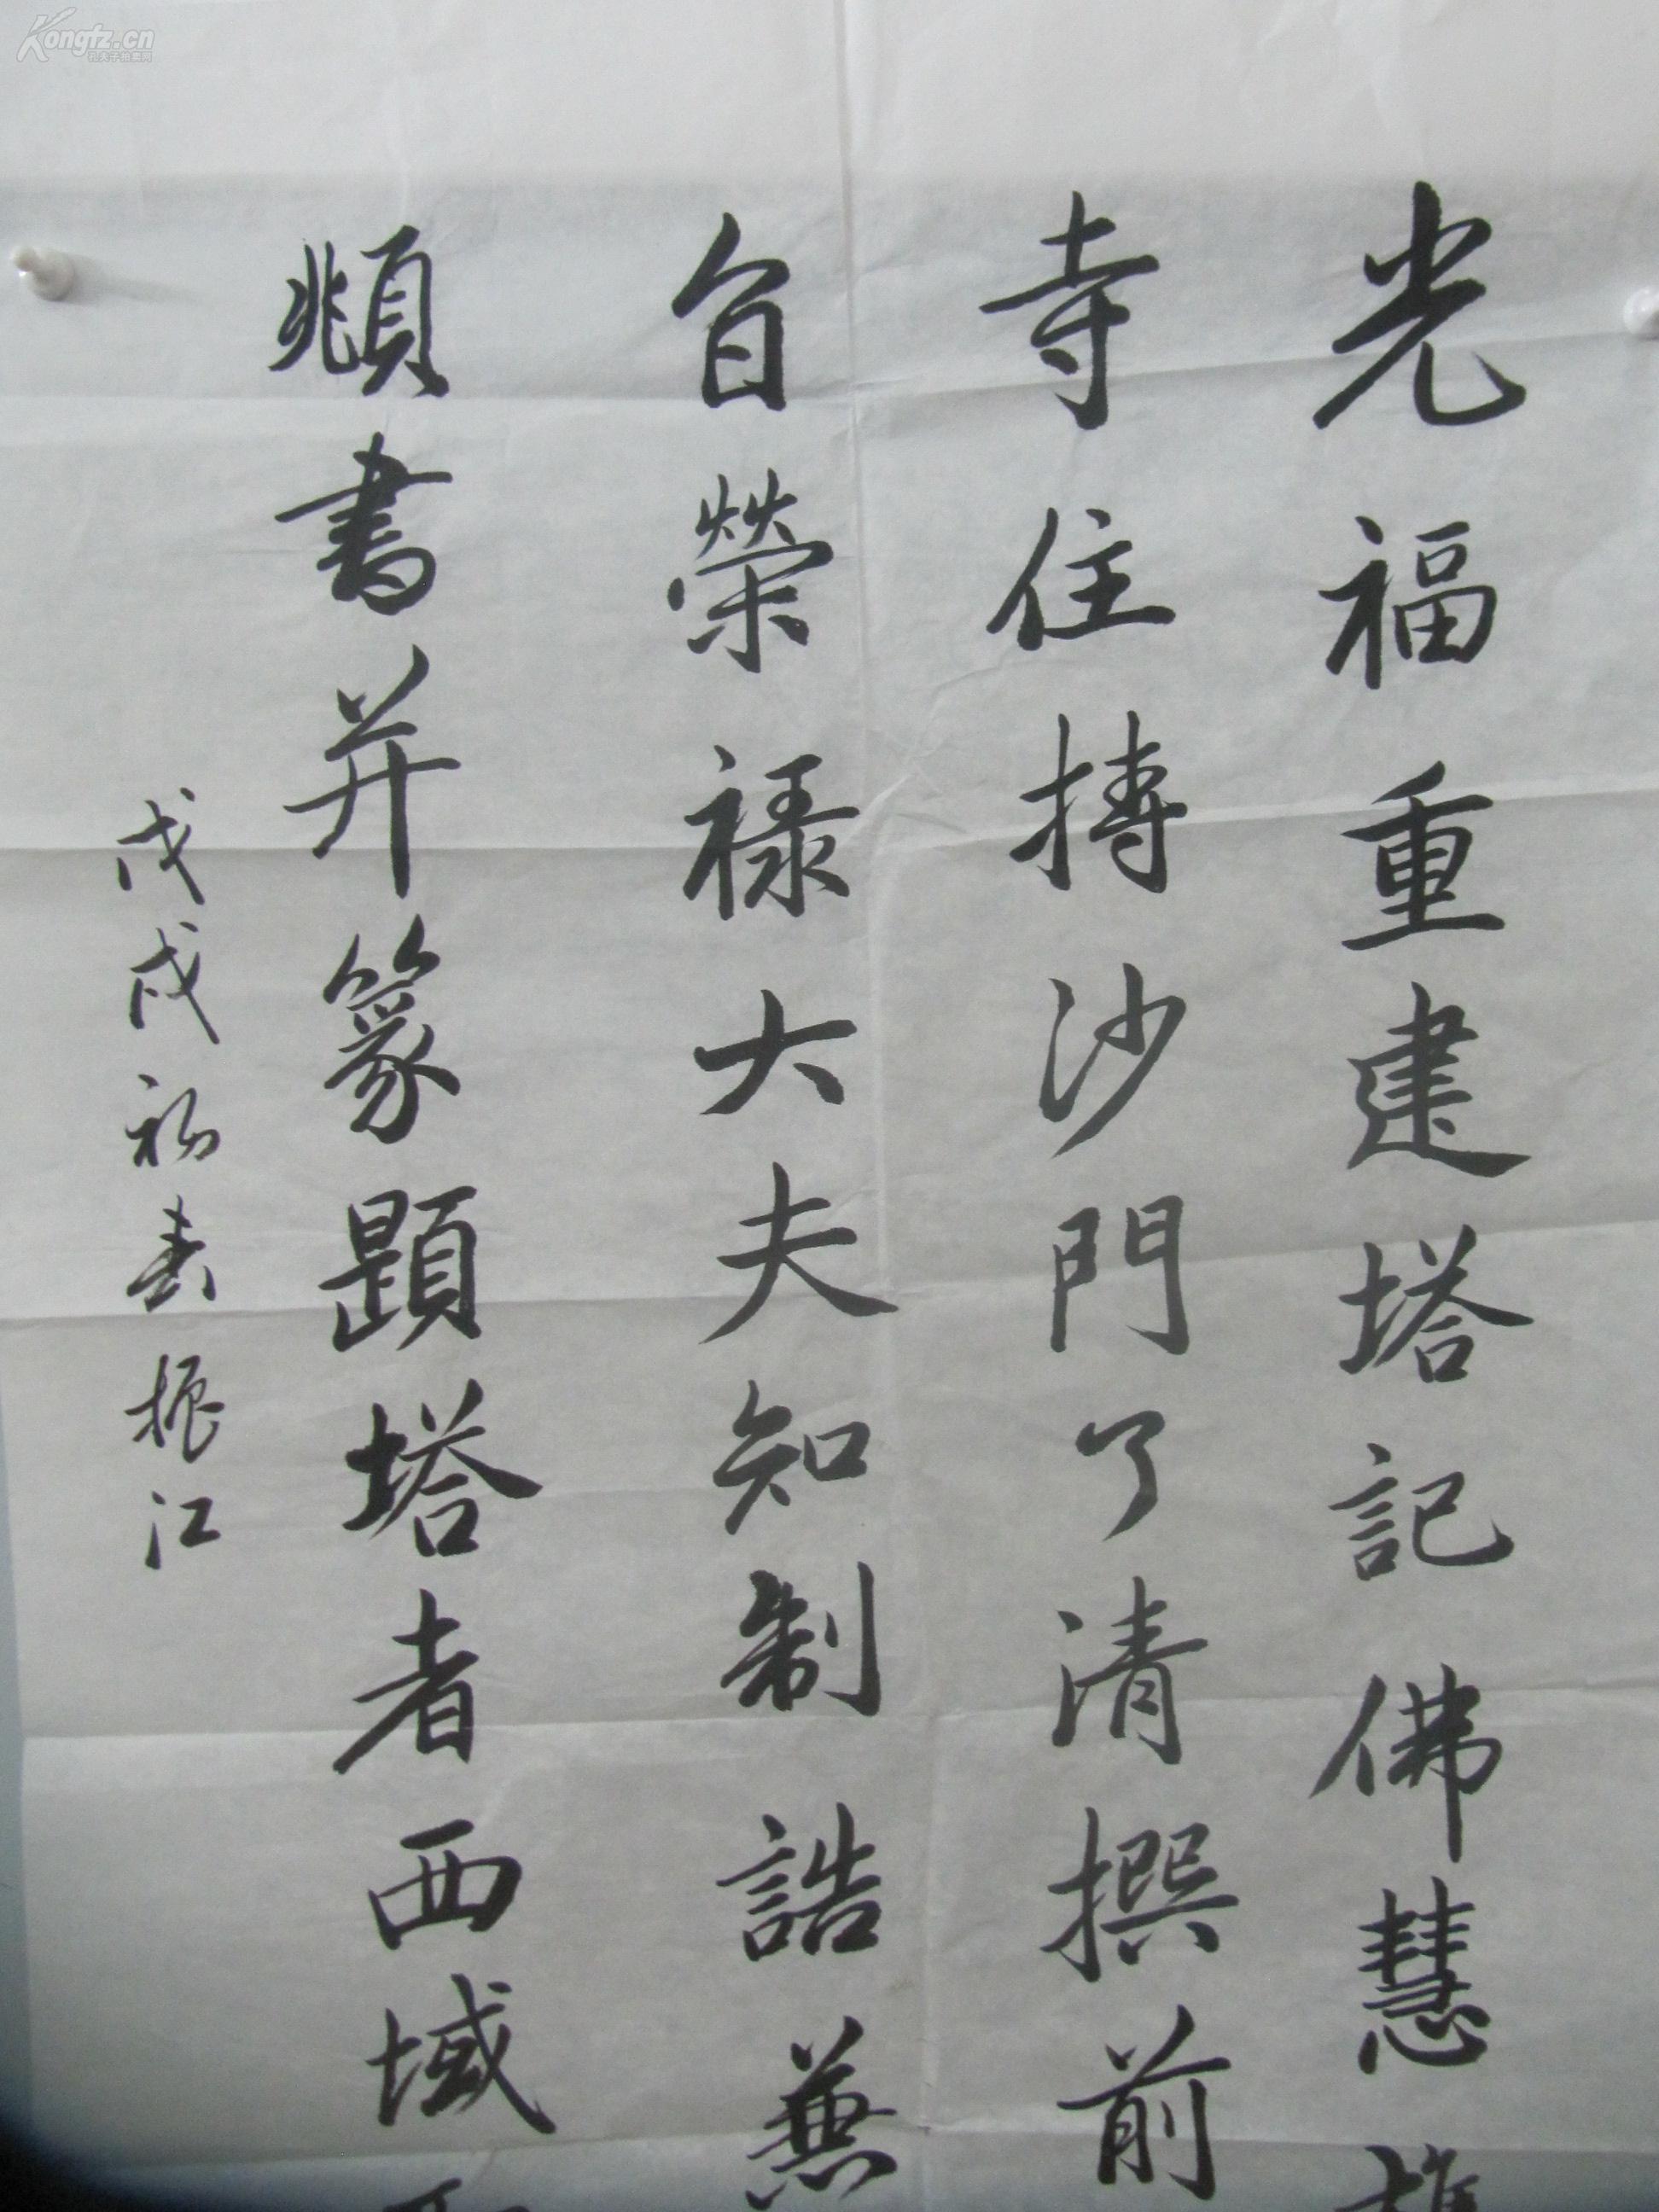 光福重建塔記佛慧
寺住摶沙門了清撰前
自榮祿大夫知制誥兼
頫書并篆題塔者西域
戊戌初春振江
Kongfz.cn